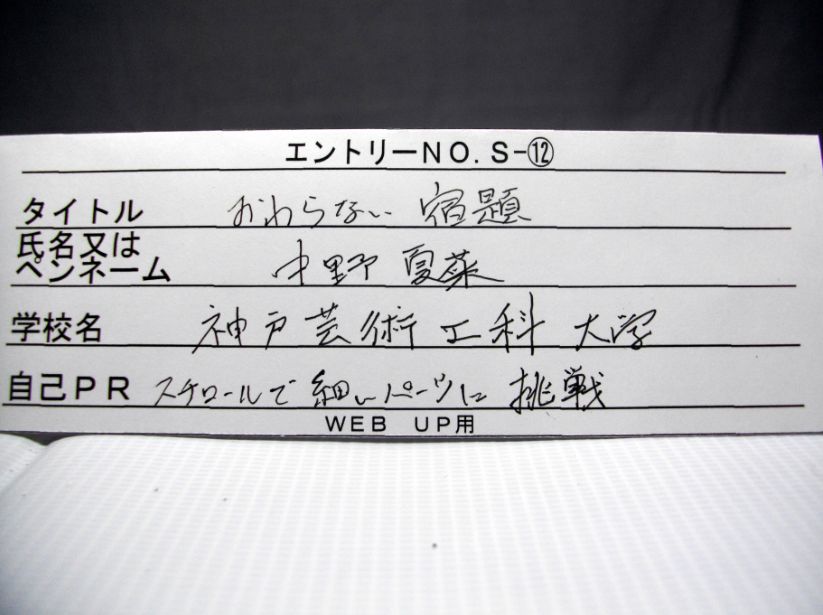 エントリーNO.S-⑫
タイトル おわらない 宿題
氏名又は
ペンネーム 中野 夏菜
学校名 神戸芸術工科大学
自己PR スチロールで 細いパーツに 挑戦
WEB UP用